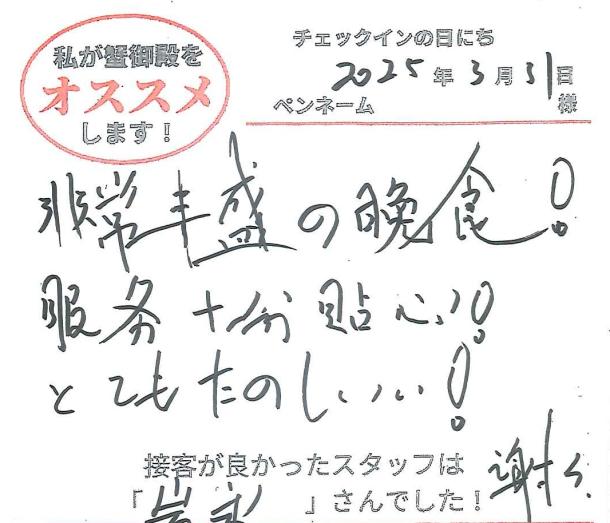 私が蟹御殿を
オススメ
します！
チェックインの日にち
2025年3月31日
ペンネーム 様
非常丰盛の晩食！
服务十分貼心！
とてもたのしいい！
謝谢
接客が良かったスタッフは
「岩永」さんでした！